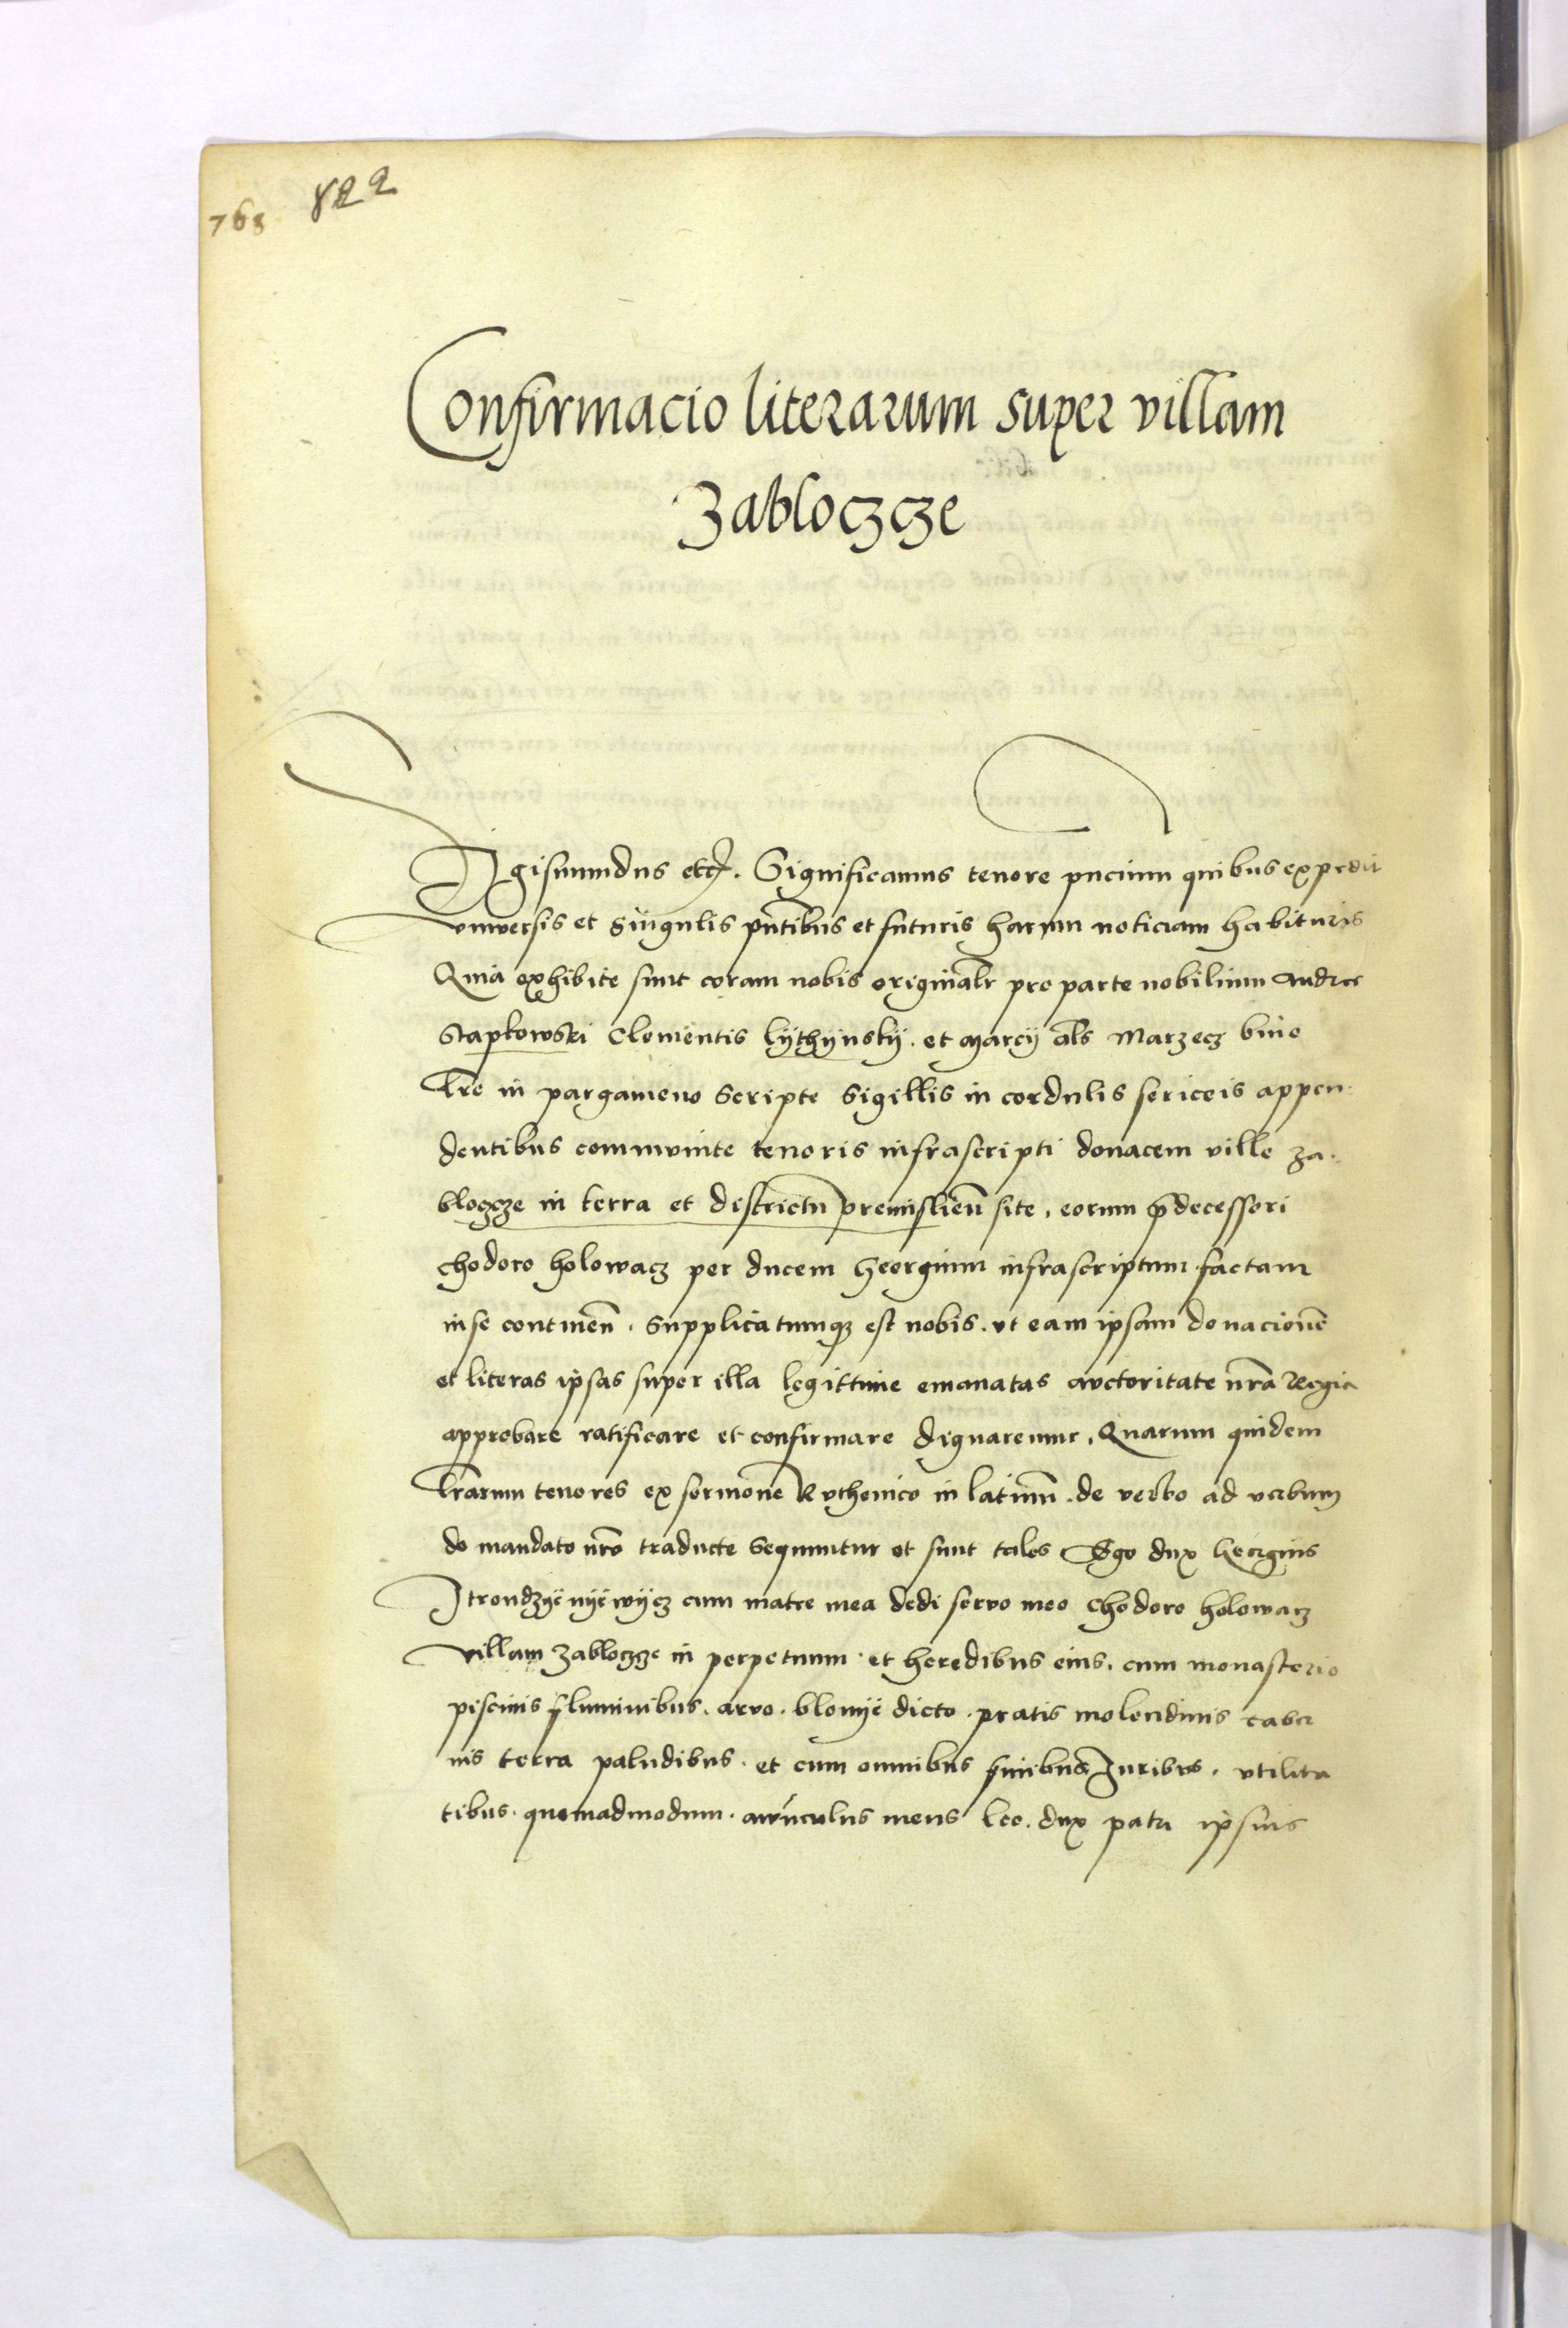 763 822
Confirmacio literarum super villam
Zabloczcze
Sigismundus etc. Significamus tenore pncium quibus expedit
vniversis et singulis pntibus et futuris harum noticiam habituris
Quia exhibite sunt coram nobis originalr pro parte nobilium Andree
Stapkowski Clementis lythynsky. et Marcy als Marzecz bine
lre in pargameno scripte sigillis in cordulis sericeis appen
dentibus communite tenoris infrascripti donacem ville Za
bloczcze in terra et districtu premislien site, eorum pdecessori
Chodoro holowacz per ducem Georgium infrascriptum factam
in se continen. Supplicatumq3 est nobis. vt eam ipsam donacione
et literas ipsas super illa legittime emanatas auctoritate nra Regia
approbare ratificare et confirmare dignaremur. Quarum quidem
lrarum tenores ex sermone Ruthenico in latinu. de verbo ad verbum
de mandato nro traducte sequuntur et sunt tales Ego dux Georgius
cum matre mea dedi servo meo Chodoro holowacz
villam Zabloczcze in perpetuum. et heredibus eius. cum monasterio
piscinis fluminibus. arvo. blonye dicto. pratis molendinis taber
nis terra paludibus. et cum omnibus finibus Iuribus. vtilita
tibus. quemadmodum. auunculus meus leo. dux ipsius